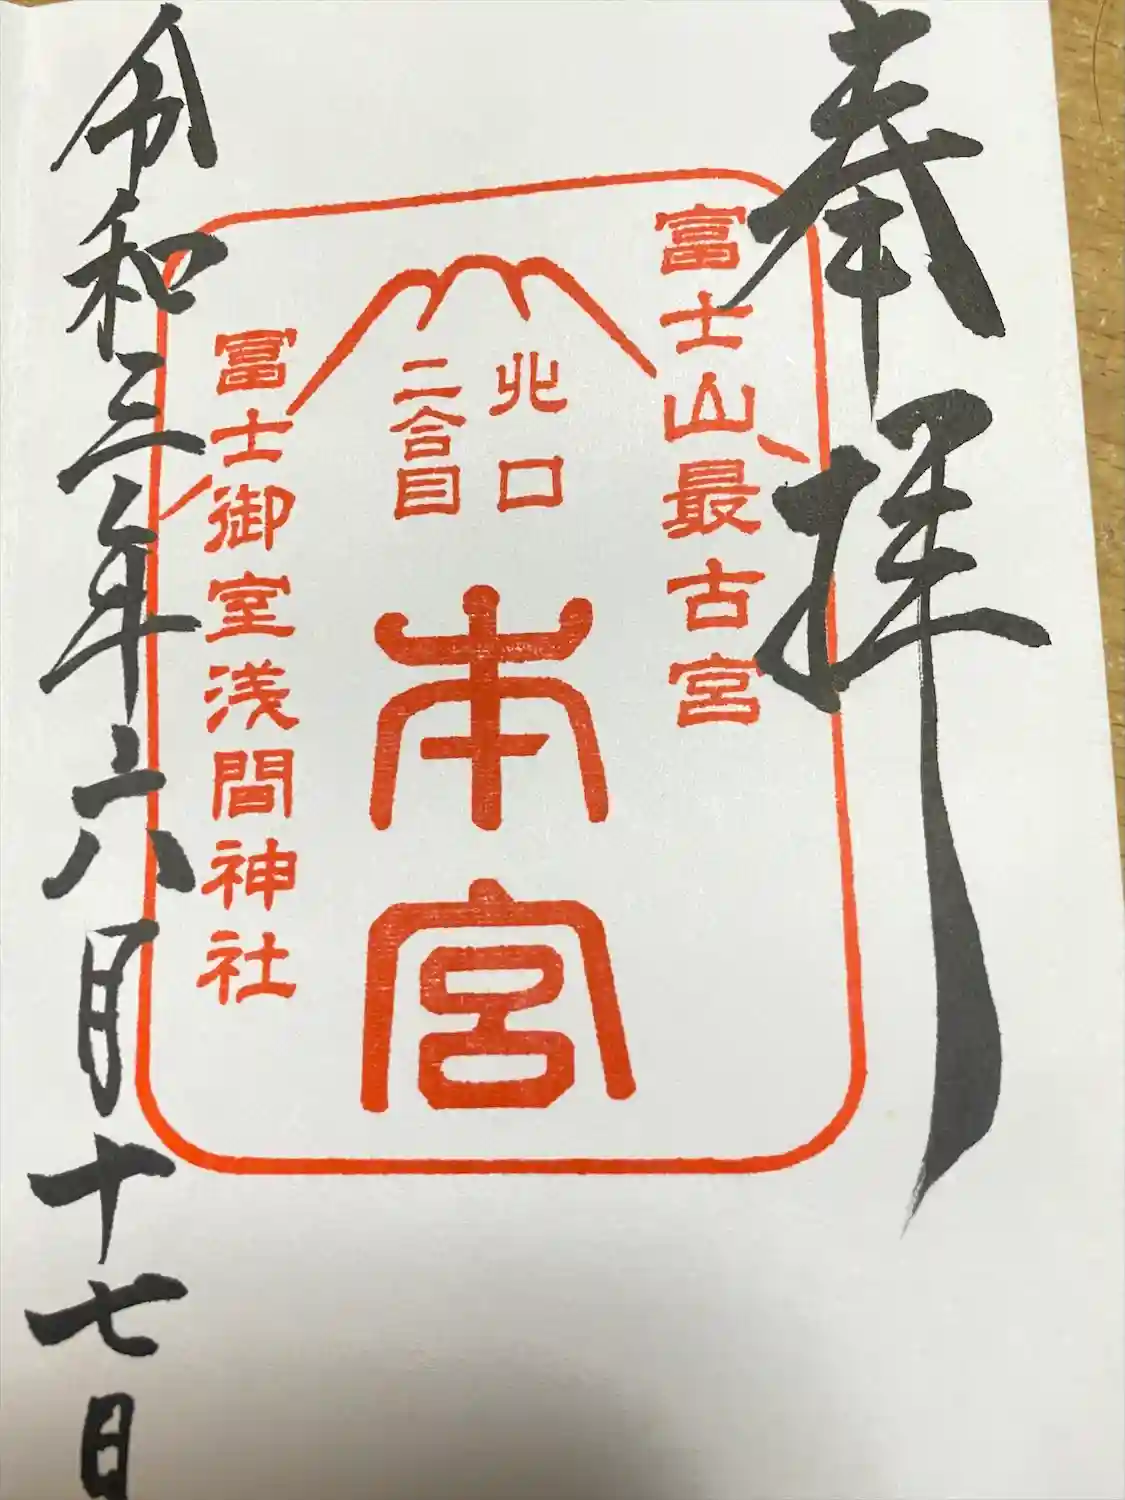 奉拝
富士山最古宮
北口
二合目
本宮
冨士御室浅間神社
令和三年六月十七日